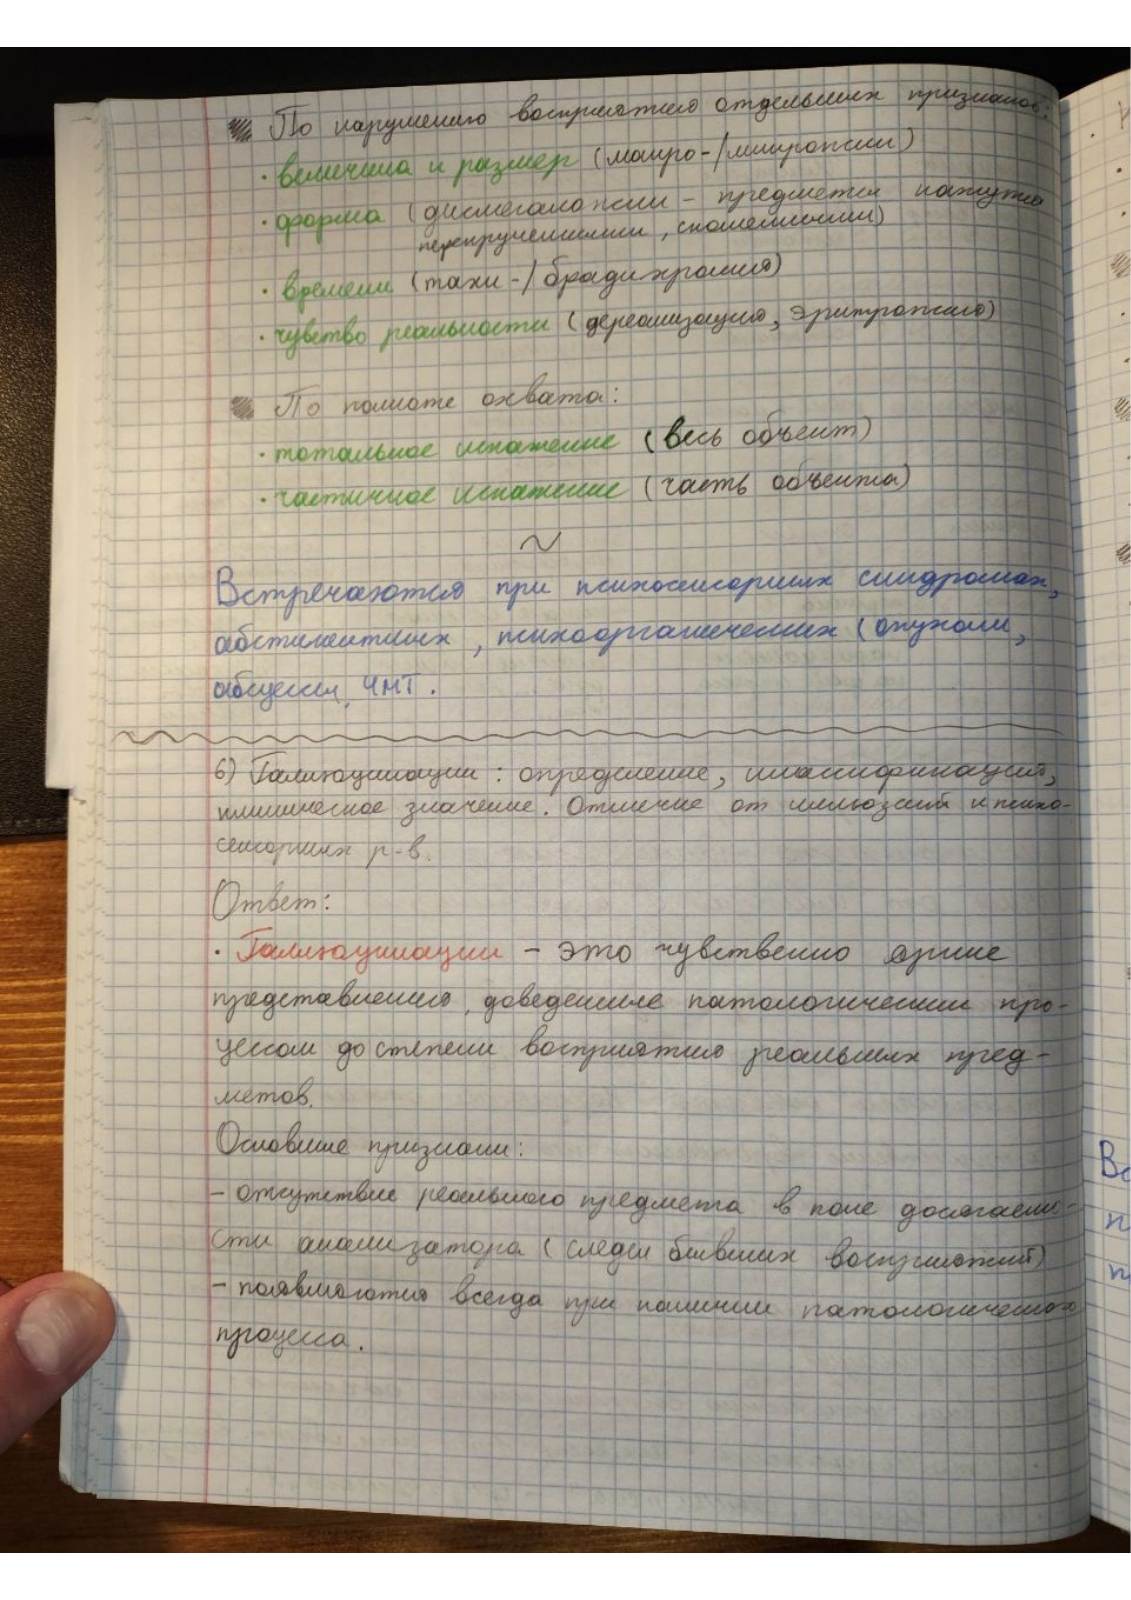 По нарушению восприятия отдельных признаков:
· величина и размер (макро-/микропсии)
· форма (дисмегалопсии - предметы кажутся
перекрученными, скошенными)
· времени (тахи-/брадихрония)
· чувство реальности (дереализация, эритропсия)
По полноте охвата:
· тотальное искажение (весь объект)
· частичное искажение (часть объекта)
Встречаются при психосенсорных синдромах,
абстинентных, психоорганических (опухоли,
абсцессы, ЧМТ.
6) Галлюцинации: определение, классификация,
клиническое значение. Отличие от иллюзий и психо-
сенсорных р-в.
Ответ:
· Галлюцинации - это чувственно яркие
представления, доведенные патологическим про-
цессом до степени восприятия реальных пред-
метов.
Основные признаки:
- отсутствие реального предмета в поле досягаемо-
сти анализатора (следы бывших восприятий)
- появляются всегда при наличии патологического
процесса.